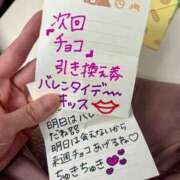 次回
チョコ
引き換え券
バレンタイデ〜
キッス
明日はバレ
だね
明日は会えないから
来週チョコあげるね♡
ちゅきちゅき